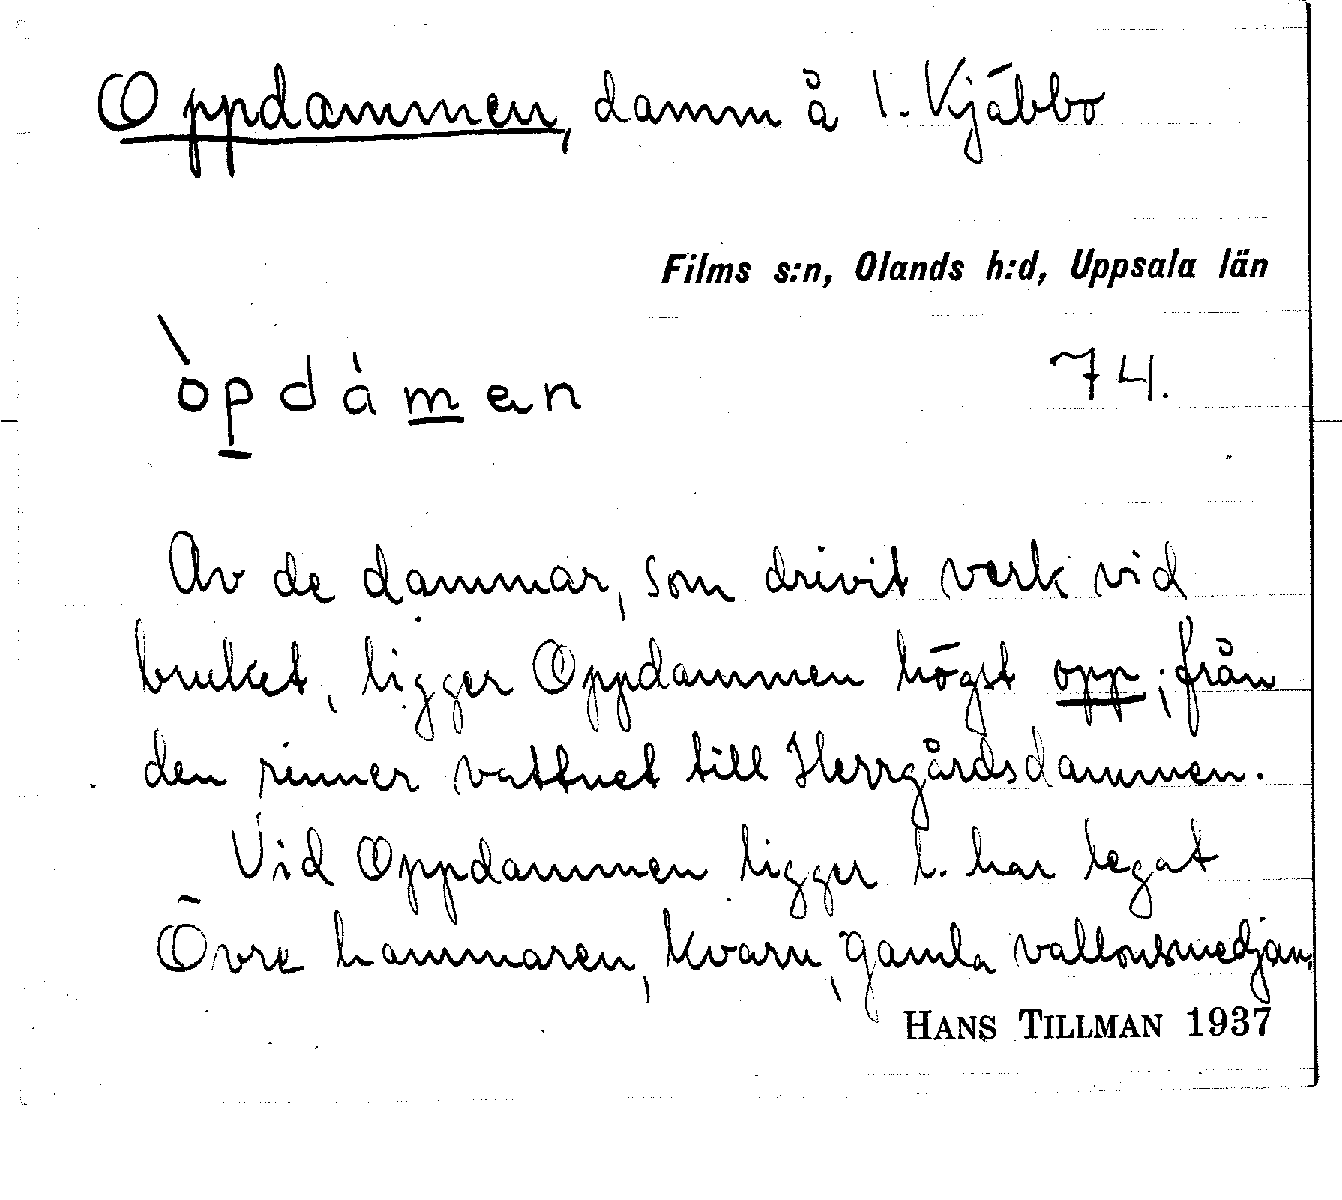 Oppdammen, damm å l. Kjäbbo
Films s:n, Olands h:d, Uppsala län
òpdámen 74.
Av de dammar, som drivit verk vid
bruket, ligger Oppdammen högst opp; från
den rinner vattnet till Herrgårdsdammen.
Vid Oppdammen ligger l. har legat
Övre hammaren, kvarn, gamla vallonsmedjan.
HANS TILLMAN 1937